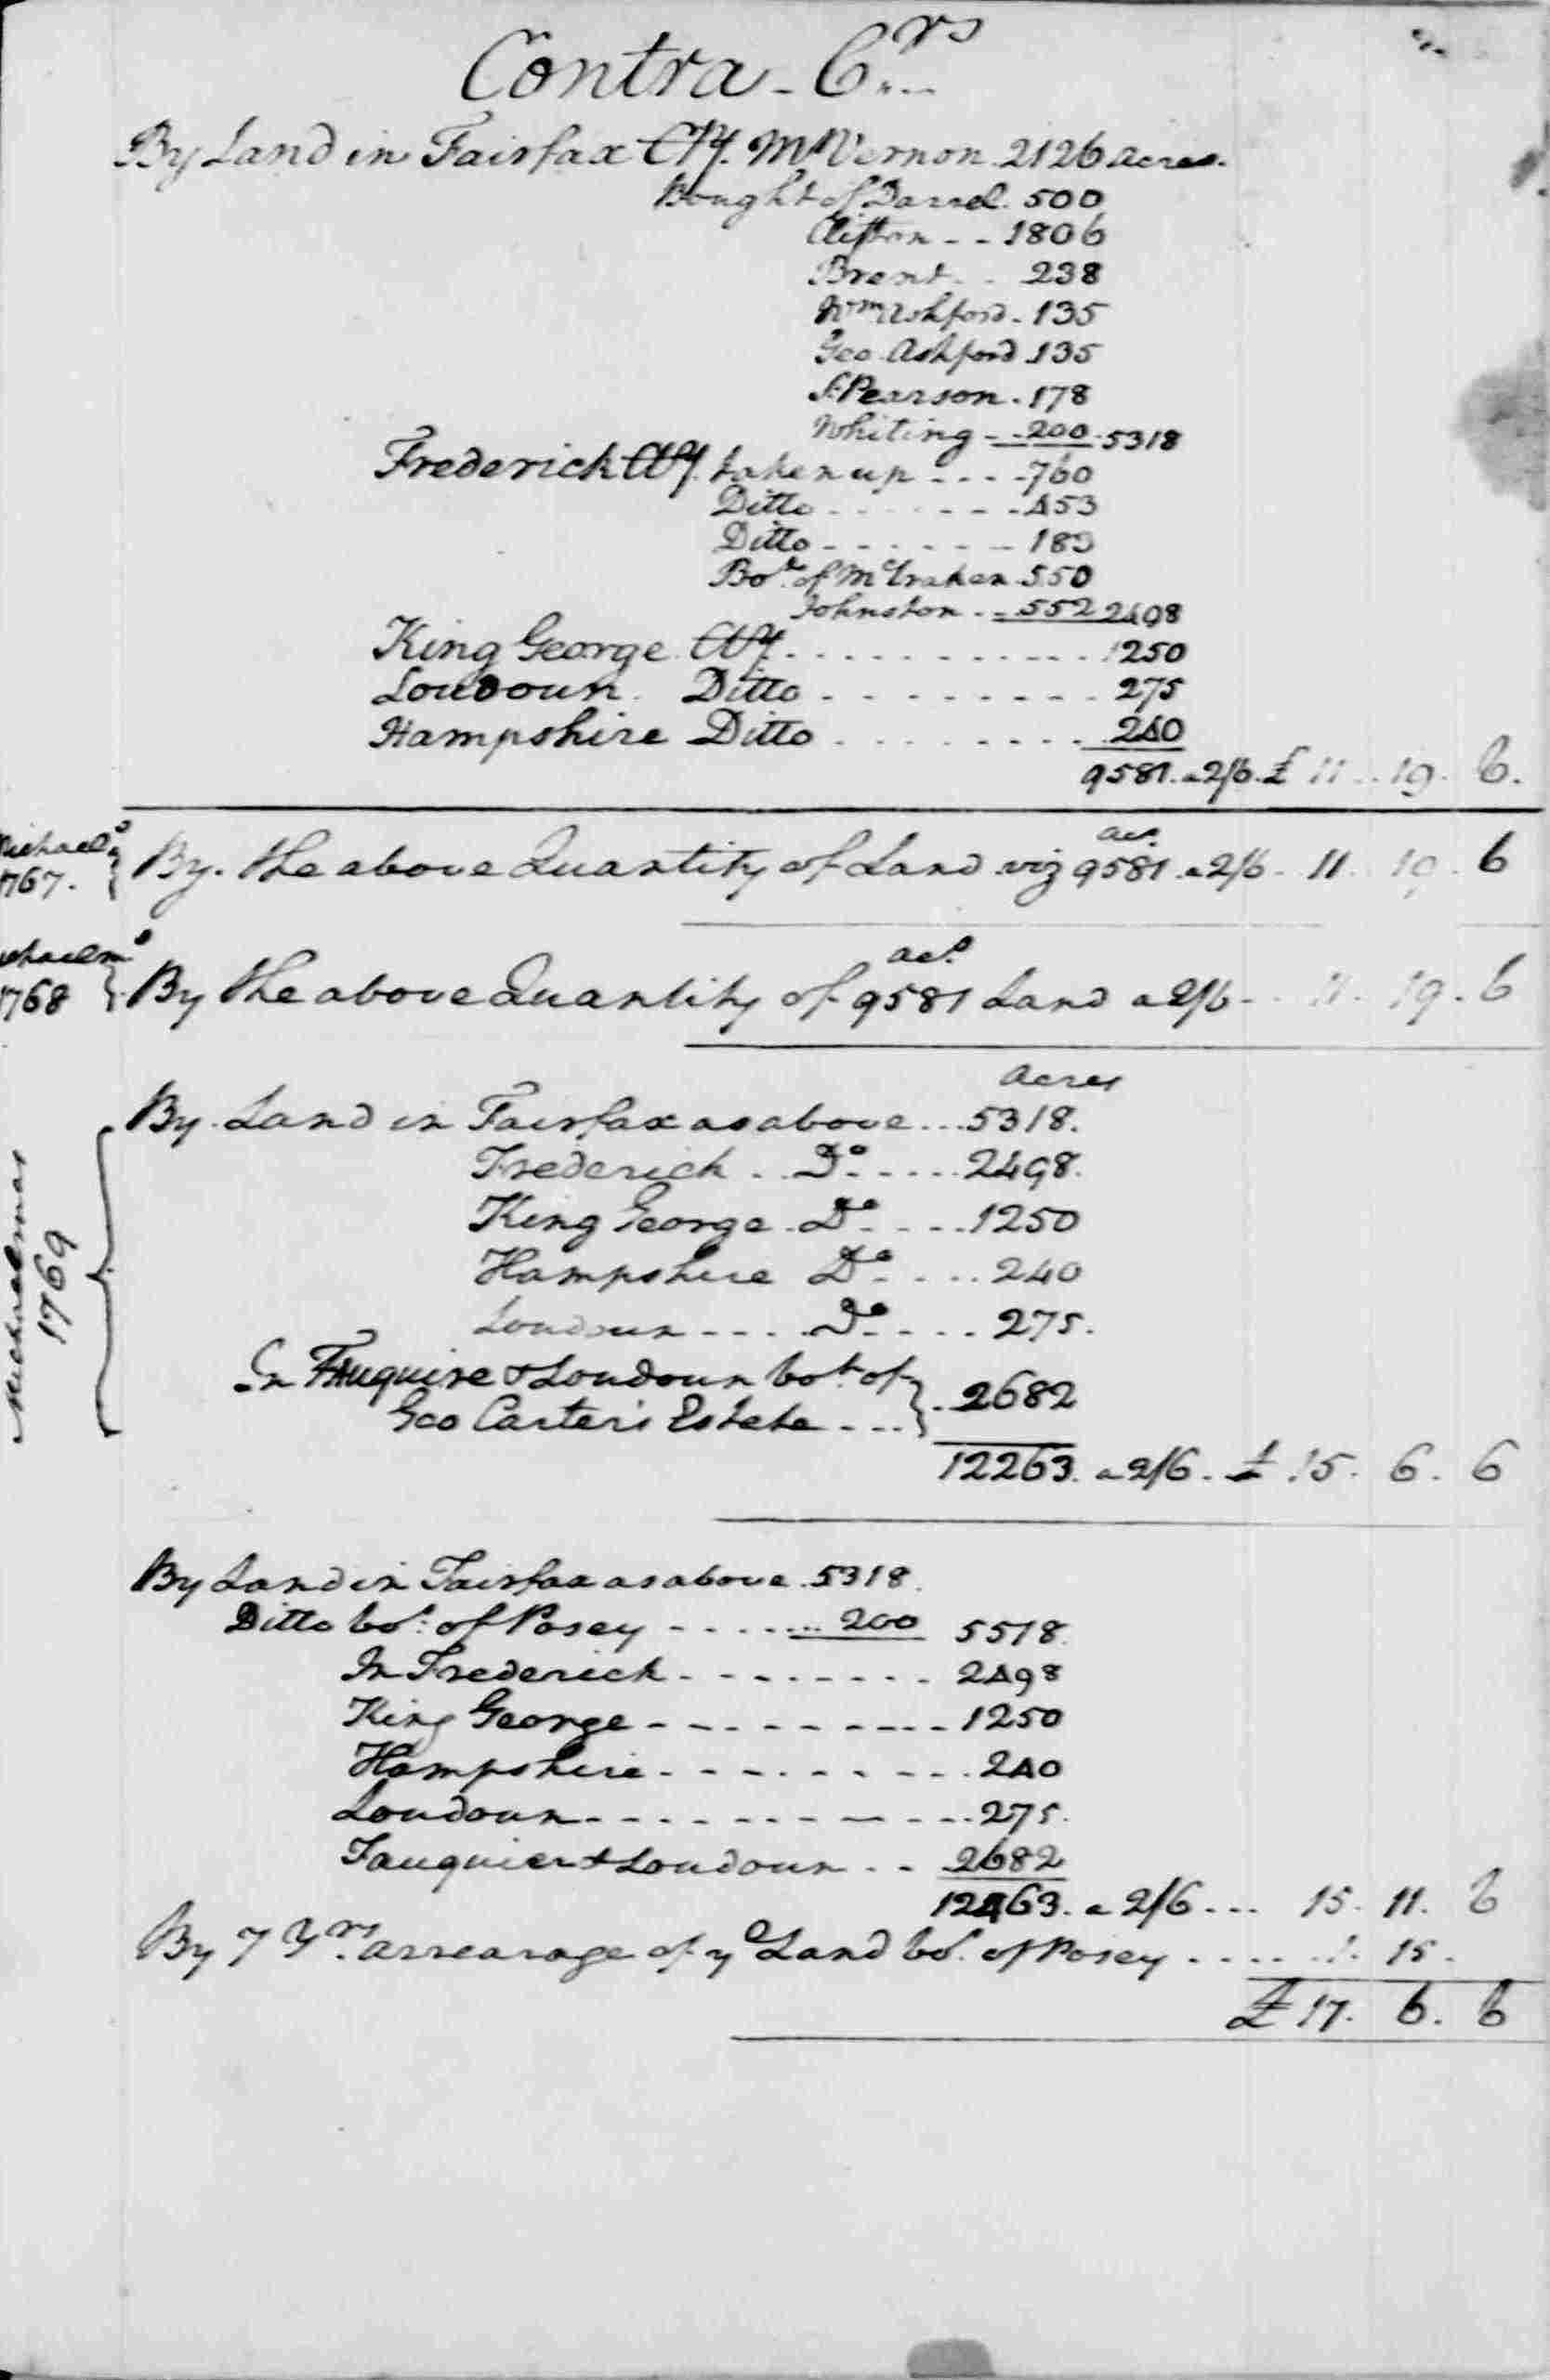 Contra - Crs
By Land in Fairfax Cty. Mt Vernon 2126 Acres.
Bought of Darrel. 500
Clifton - - 1806
Brent - - 238
Wm Ashford - 135
Geo. Ashford 135
S. Pearson - 178
Whiting - - 200 - 5318
Frederick Cty. taken up - - - - 760
Ditto - - - - - - - 453
Ditto - - - - - - 183
Bot of McCraken 550
Johnston - - 552 2498
King George Cty. - - - - - - - - - - 1250
Loudoun Ditto - - - - - - - - 275
Hampshire Ditto - - - - - - - - 240
9581 a 2/6 £ 11 - 19 - 6.
Michaels 1767. By the above Quantity of Land viz 9581 acs. a 2/6 - 11 - 19 - 6
1768 By the above Quantity of 9581 acs. Land a 2/6 - - 11 - 19 - 6
Michaelmas 1769
Acres
By Land in Fairfax as above - - 5318.
Frederick - - Do - - - - 2498.
King George - Do - - - - 1250
Hampshire Do - - - - 240
Loudoun - - - - Do - - - - 275.
In Fauquire & Loudoun bot of
Geo Carter's Estate - - - 2682
12263. a 2/6 - £ 15 - 6 - 6
By Land in Fairfax as above - 5318.
Ditto bot. of Posey - - - - - 200 5518
In Frederick - - - - - - - - 2498
King George - - - - - - - - - 1250
Hampshire - - - - - - - - - 240
Loudoun - - - - - - - - - 275.
Fauquier & Loudoun - - 2682
12463. a 2/6 - - - 15 - 11. 6
By 7 Yrs. arrearage of ye Land bot. of Posey - - - - 1 - 15 -
£ 17 - 6 - 6